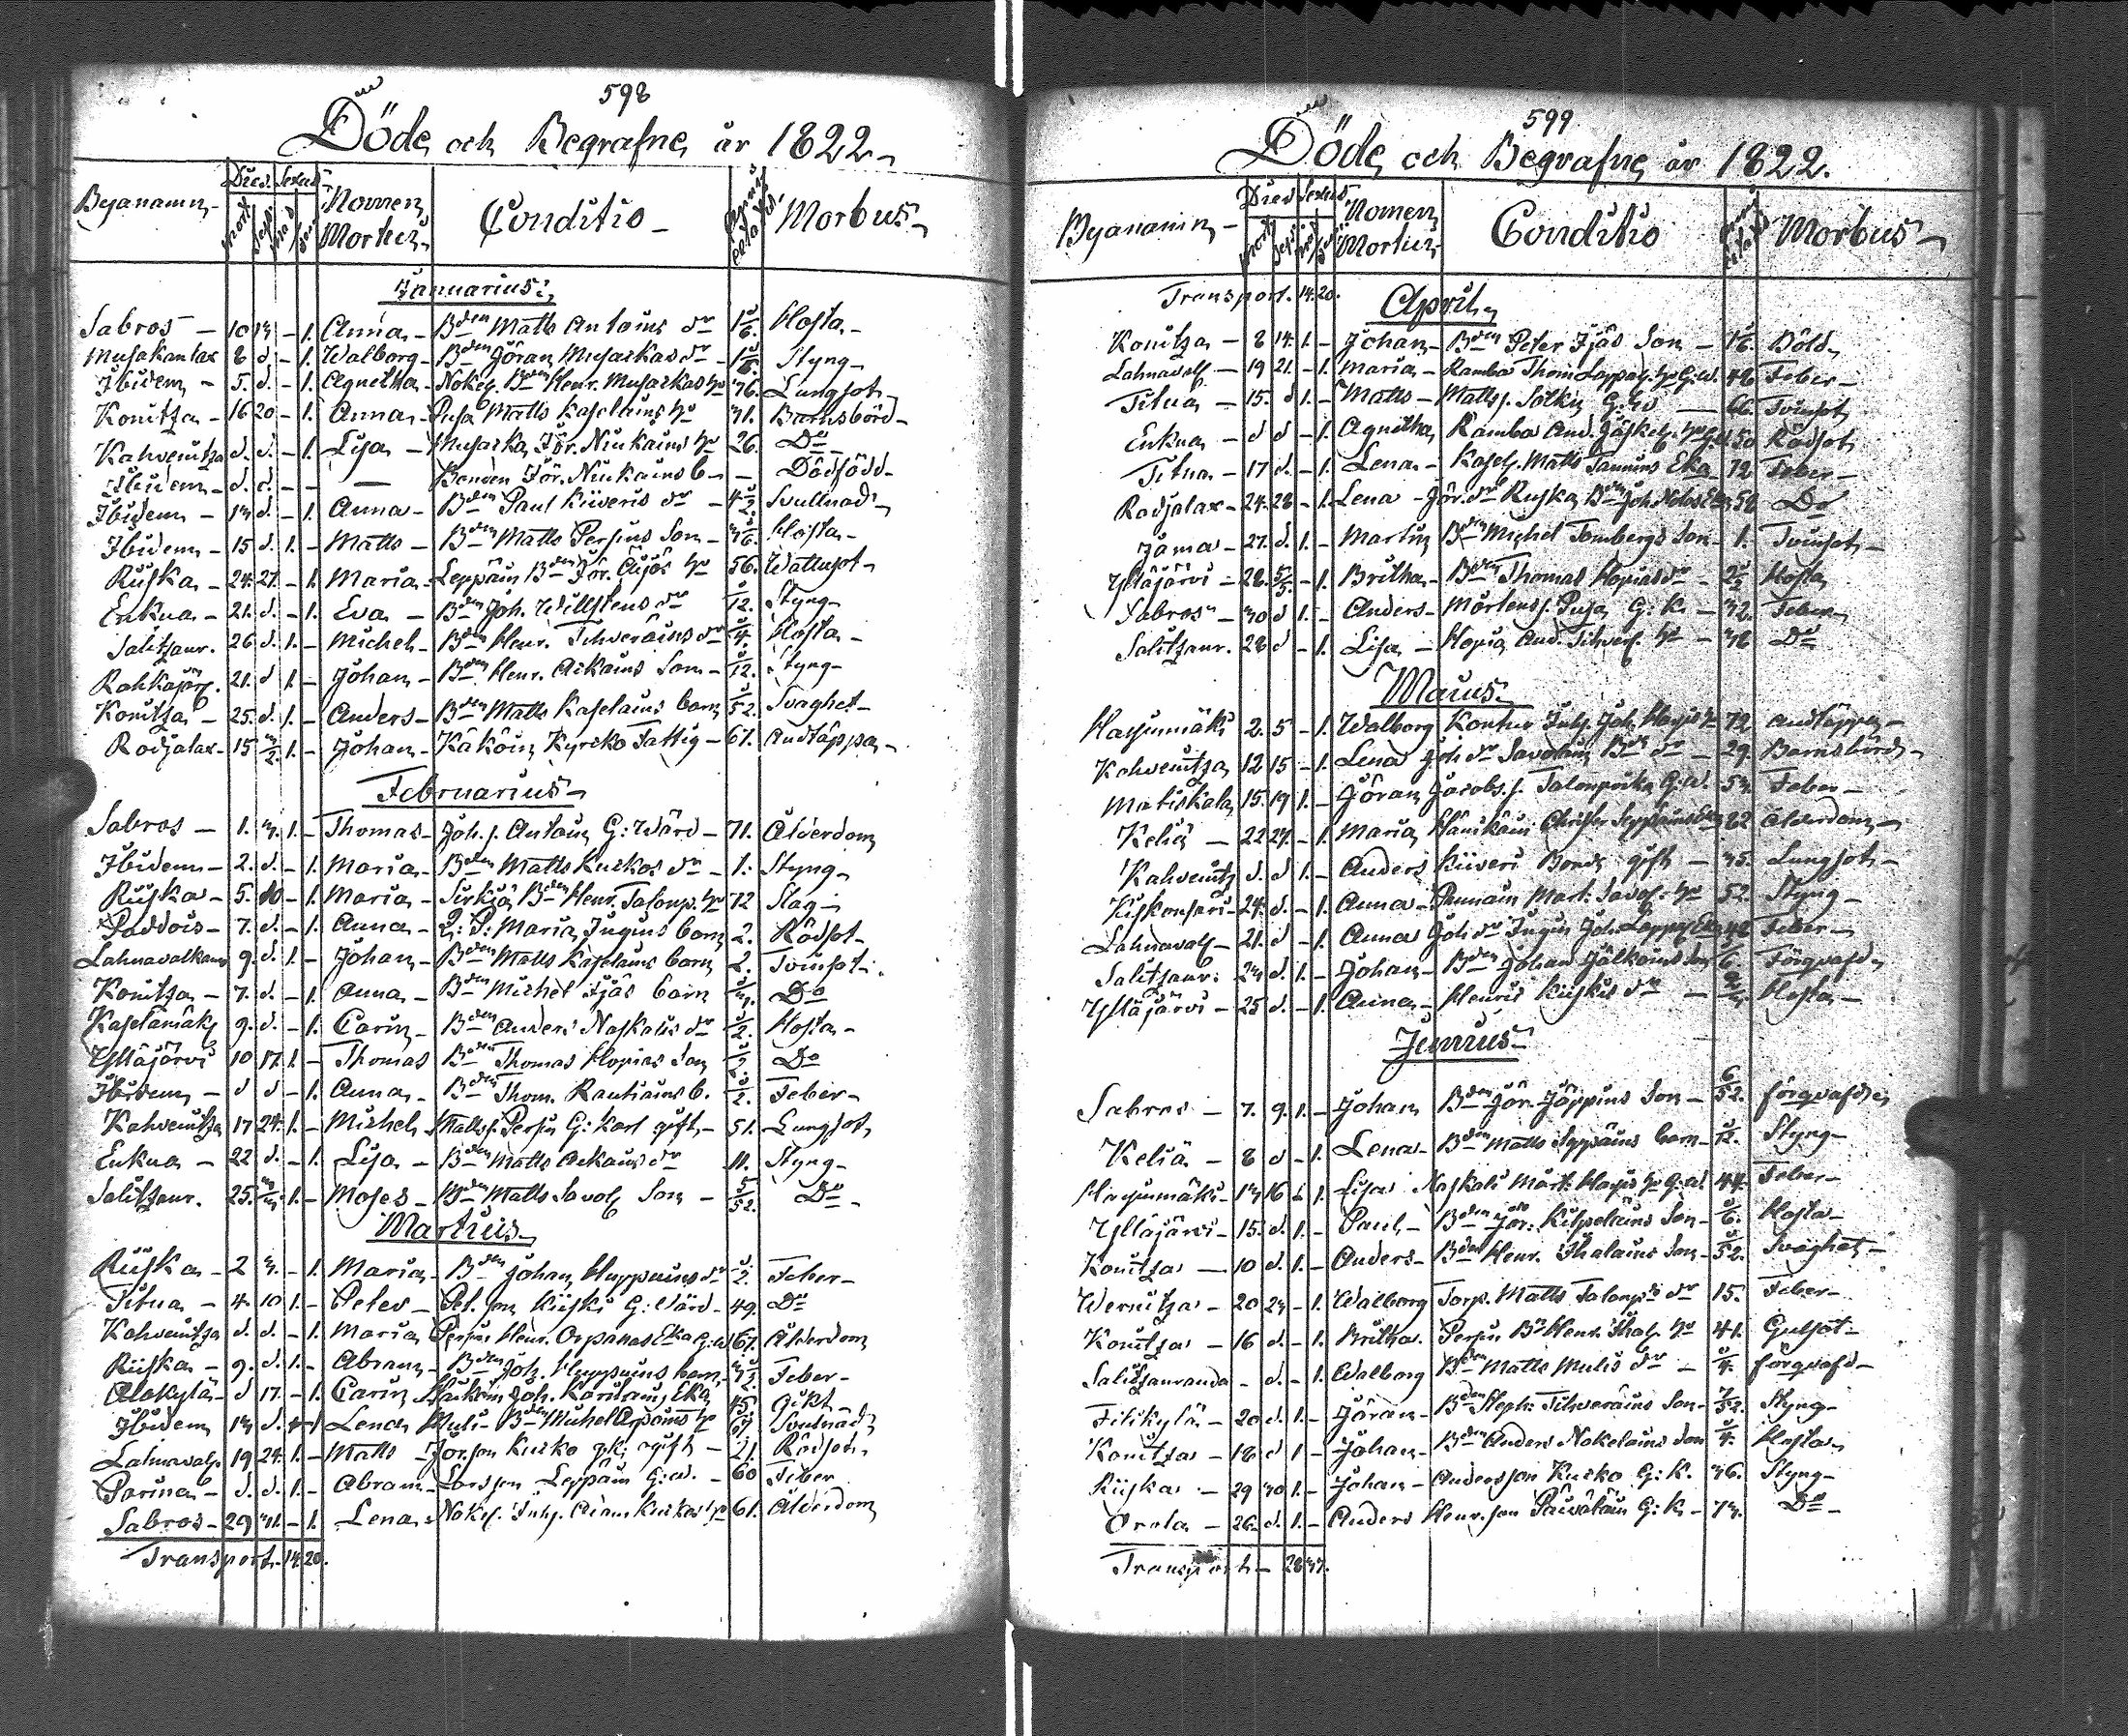 598
Döde och Begrafne år 1822
Byanamn Dies Sexus Nomen Mortui Conditio Morbus
Januarius
Sabros 10 13 - 1. Anna Bden Matts Antoins dr Hosta
Musakanlax 8 d - 1. Walborg Bden Jöran Musackas dr Styng
Ibidem 5. d. - 1. Agnetha Nokel. Bden Henr. Musackas hu 36. Lungsot
Konitza 16 20 - 1. Anna Pusa Matts Kaselains hu 31. Barnsbörd
Kahvenitza d. d. - 1. Lisa Musacka Jör. Niukains hu 26. Do
Ibidem d. d. - - Bonden Jör. Niukains b. - Dödfödd
Ibidem 13 d. - 1. Anna Bden Paul Kiiveris dr Svullnad
Ibidem 15 d. 1. - Matts Bden Matts Persius Son Hosta
Riiska 24. 27. - 1. Maria Leppäin Bden Jör. hu 56. Wattusot
Enkua 21. d. - 1. Eva Bden Joh. Willstens dr Styng
Salitzanr. 26 d. 1. - Michel Bden Henr. Tihveräins Hosta
21. d 1. - Johan Bden Henr. Aikains Son Styng
Konitza 25. d. 1. - Anders Bden Matts Kaselains barn Svaghet
Rodjalax 15 3/2 1. - Johan Käköin Kyrcko Fattig 67. Andtäppa
Februarius
Sabros 1. 3. 1. - Thomas Joh. s. Antoin G: Wärd 71. Ålderdom
Ibidem 2. d. - 1. Maria Bden Matts Kuckos dr 1. Styng
Riiska 5. 10 - 1. Maria Sirkiä Bden Henr. Talonp. hu 72 Slag
Paddois 7. d. - 1. Anna Q: P: Maria Jugins barn 2. Rödsot
Lahnavalkama 9. d. 1. - Johan Bden Matts Kaselains barn 2. Tvinsot
Konitza 7. d. - 1. Anna Bden Michel Ijäs barn Do
Kaselamäki 9. d. - 1. Carin Bden Anders Naskalis dr Hosta
Ylläjärvi 10 17. 1. - Thomas Bden Thomas Hopias Son Do
Ibidem d d - 1. Anna Bden Thom. Rautiains b. Feber
Kahvenitza 17 24. 1. - Michel Matts s. Persin G: karl gift 51. Lungsot
Enkua 22 d. - 1. Lisa Bden Matts Aikains dr 11. Styng
Salitzanr. 25. 3/3 1. - Moses Bden Matts Savol. Son 5/52. Do
Martius
Riiska 2 3. - 1. Maria Bden Johan Huppains dr Feber
Titua 4. 10 1. - Peter Pet. son Kiiski G: Wärd 49. Do
Kahvenitza d. d. - 1. Maria Persin Henr. Orpanas Eka 67. Ålderdom
Riiska 9. d. 1. - Abram Bden Joh. Huppains barn Feber
Alakylä d 17. - 1. Carin Joh. Eka 45. Gikt
Ibidem 13 d. - 1 Lena Muli Bden Michel hu 67. Svulnad
Lahnavalk. 19 24. 1. - Matts Jör. son Kucko ogift 21. Rödsot
Parina d. d. 1. - Abram Larsson Leppäin G: w. 60 Feber
Sabros 29 31. - 1. Lena Nokel. Inh. Kuckos hu 61. Ålderdom
Transport. 14. 20.
599
Döde och Begrafne år 1822.
Byanamn Dies Sexus Nomen Mortui Conditio Morbus
Transport. 14. 20.
April
Konitza 8 14. 1. - Johan Bden Peter Ijäs Son Böld
Lahnavalk 19 21. - 1. Maria Ramba Thom Lappal. hu G.w. 48 Feber
Titua 15. d 1. - Matts Matts s. Solkin G: w 66. Tvinsot
Enkua d d - 1. Agnetha Ramba And. Jäskel. hu 50 Rödsot
Titua 17 d. - 1. Lena Kasel. Matts Tannins Eka 72 Feber
Rodjalax 24. 28 - 1. Lena Jör. dr Ruska Bden Joh. Eka 59 Do
Jama 27. d. 1. - Martin Bden Michel Tombergs Son 1. Tvinsot
Ylläjärvi 28. 5/5 - 1. Britha Bden Thomas Hopias dr Hosta
Sabros 30 d 1. - Anders Mårtens s. Pusa G: K. 32. Feber
Salitzanr. 28 d - 1. Lisa Hopia And. Tihver. hu 38 Do
Maius
Harjunmäki 2. 5 - 1. Walborg Kontur Inh. Joh. hu 72 Andtäppa
Kahvenitza 12 15 - 1. Lena Joh dr Savolain Bde dr 29. Barnsbörd
Matiskala 15. 19 1. - Jöran Jacobs. s. Talonpoika G: w. 53. Feber
Keliä 22 27. - 1. Maria Hänikäin Christer Seppäins 82 Ålderdom
Kahvenitz d. d 1. - Anders Kiiveri Bonde gift 35. Lungsot
Kiskonsari 24. d. - 1. Anna Pennain Mart. Savol. hu 52. Styng
Lahnavalk 21. d - 1. Anna Joh dr Jugin Joh Lappal. Eka 48 Feber
Salitzanr. 23 d. 1. - Johan Bden Johan Jälkäins Son Förqvafd
Ylläjärvi 25 d. - 1. Anna Henric Kiiskis dr Hosta
Junius
Sabros 7. 9. 1. - Johan Bden Jör. Jöppins Son 6/52. förqvafd
Keliä 8 d - 1. Lena Bden Matts Seppäins barn Styng
Harjunmäki 13 16 - 1. Lisa Naskali Mårt. hu G: w. 44. Feber
Ylläjärvi 15. d. 1. - Paul Bden Jör. Kilpeläins Son Hosta
Konitza 10 d. 1. - Anders Bden Henr. Ihalains Son Svaghet
Wernitza 20 23 - 1. Walborg Torp. Matts Talonp. dr 15. Feber
Konitza 16 d. - 1. Britha Persin Bn Henr. Ihal. hu 41. Gulsot
Salitzanranda - d. - 1. Walborg Bden Matts Mulis dr förqvafd
Titikylä 20 d. 1. - Jöran Bden Steph. Tihveräins Son Styng
Konitza 18 d 1 - Johan Bden Anders Nokelains Son Hosta
Riiska 29 30 1. - Johan Andersson Kucko G: K. 36. Styng
Orola 26. d. 1. - Anders Henr. son Päiväläin G: K 73. Do
Transport 28 37.